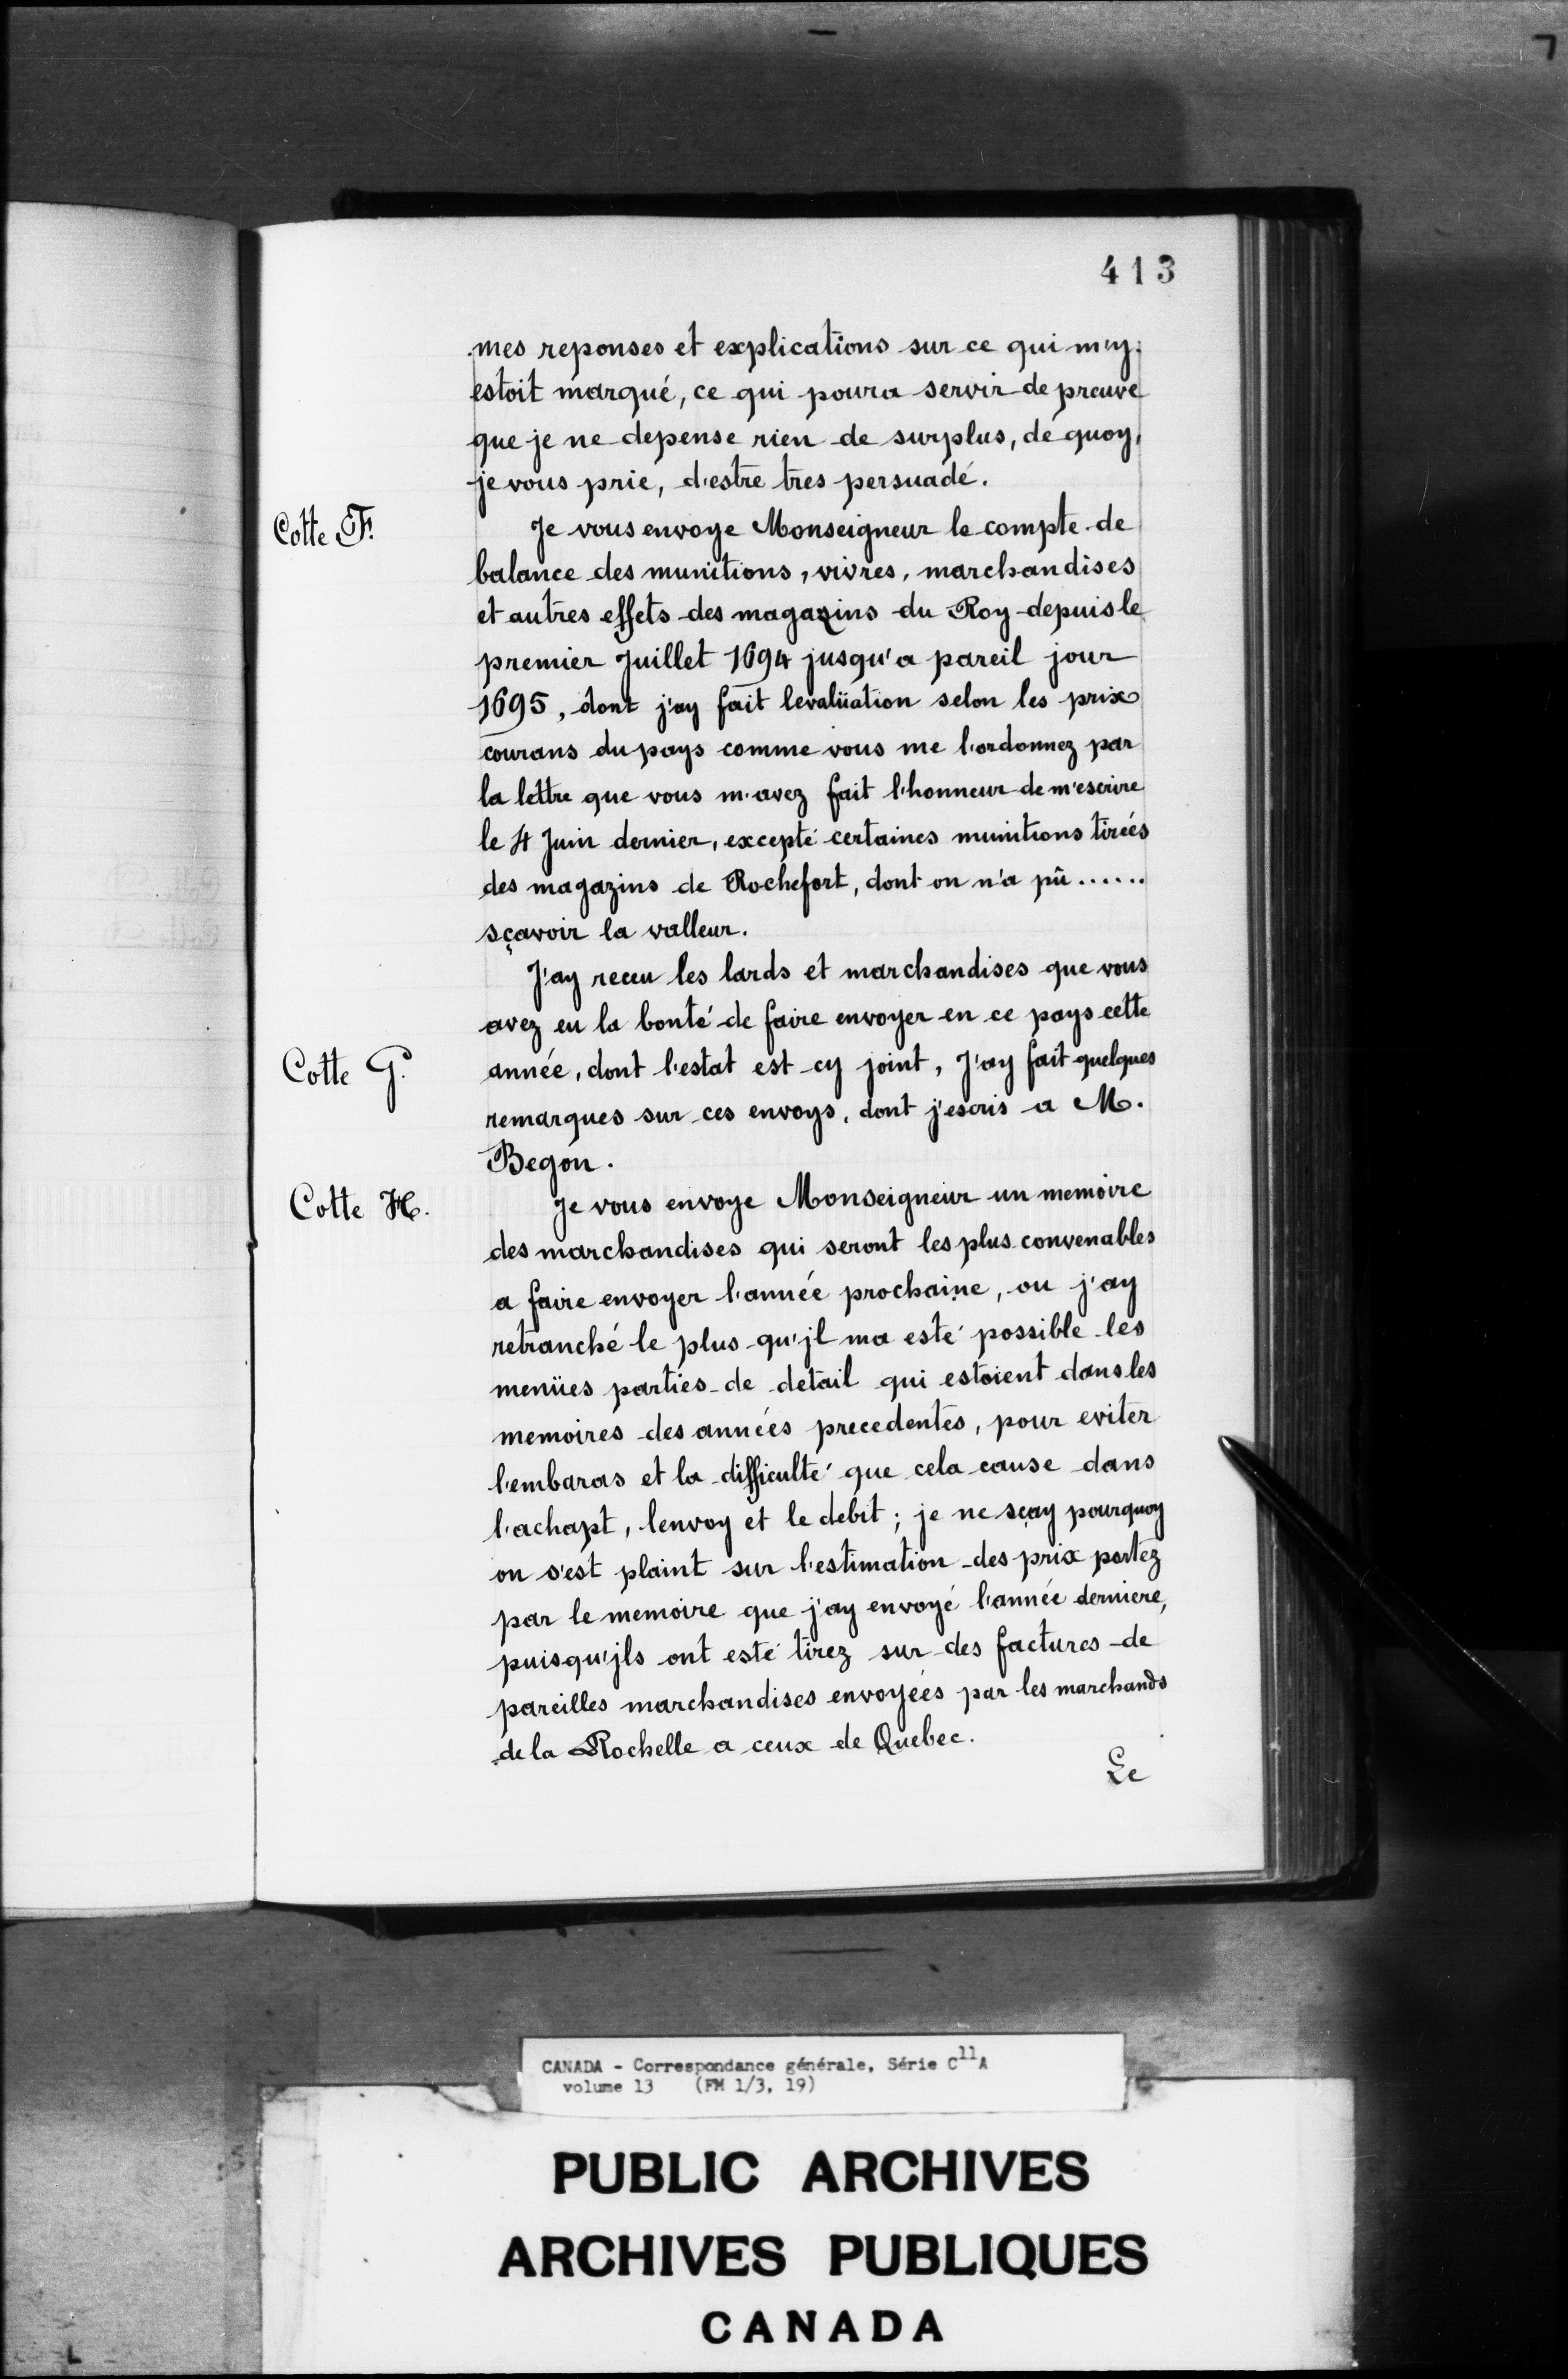 413
mes reponses et explications sur ce qui m'y
estoit marqué, ce qui poura servir de preuve
que je ne depense rien de surplus, de quoy,
je vous prie, d'estre tres persuadé.
Cotte F.
Je vous envoye Monseigneur le compte de
balance des munitions, vivres, marchandises
et autres effets des magazins du Roy depuis le
premier Juillet 1694 jusqu'a pareil jour
1695, dont j'ay fait levalüation selon les prix
courans du pays comme vous me l'ordonnez par
la lettre que vous m'avez fait l'honneur de m'escrire
le 4 Juin dernier, excepté certaines munitions tirées
des magazins de Rochefort, dont on n'a pû ......
sçavoir la valleur.
J'ay receu les lards et marchandises que vous
avez eu la bonté de faire envoyer en ce pays cette
Cotte G.
année, dont l'estat est cy joint, J'ay fait quelques
remarques sur ces envoys, dont j'escris a M.
Begon.
Cotte H.
Je vous envoye Monseigneur un memoire
des marchandises qui seront les plus convenables
a faire envoyer l'année prochaine, ou j'ay
retranché le plus qu'jl ma esté possible les
menües parties de detail qui estoient dans les
memoires des années precedentes, pour eviter
l'embaras et la difficulté que cela cause dans
l'achapt, lenvoy et le debit; je ne sçay pourquoy
on s'est plaint sur l'estimation des prix portez
par le memoire que j'ay envoyé l'année derniere,
puisqu'jls ont esté tirez sur des factures de
pareilles marchandises envoyées par les marchands
de la Rochelle a ceux de Quebec.
Le
CANADA - Correspondance générale, Série C11A
volume 13 (FM 1/3, 19)
PUBLIC ARCHIVES
ARCHIVES PUBLIQUES
CANADA